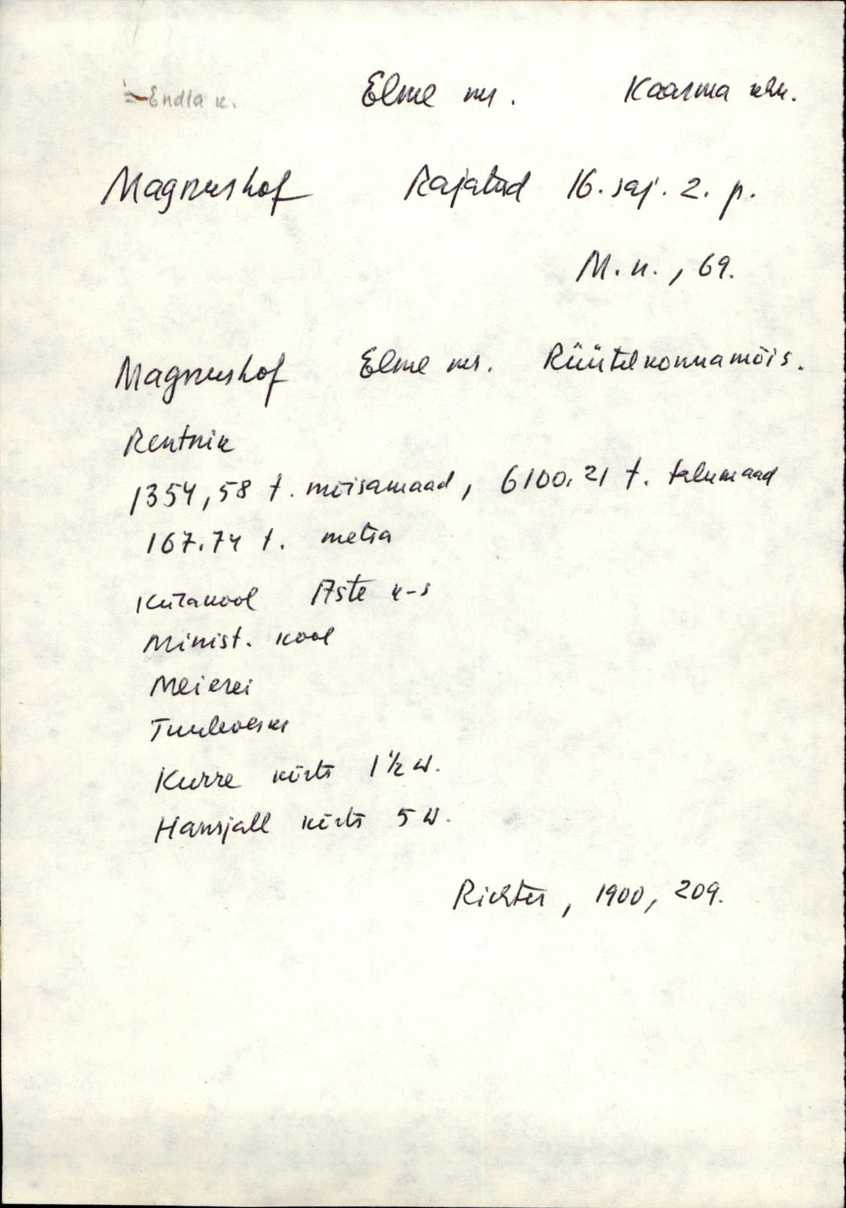 = Endla k.
Elme ms. Kaarma khk.
Magnushof Rajatud 16. saj. 2. p.
M. n., 69.
Magnushof Elme ms. Rüütelkonnamõis.
Rentnik
1354,58 t. mõisamaad, 6100,21 t. talumaad
167.74 t. metsa
Külakool Aste k-s
Minist. kool
Meierei
Tuuleveski
Kurre kõrts 1 1/2 w.
Hansjall kõrts 5 w.
Richter, 1900, 209.